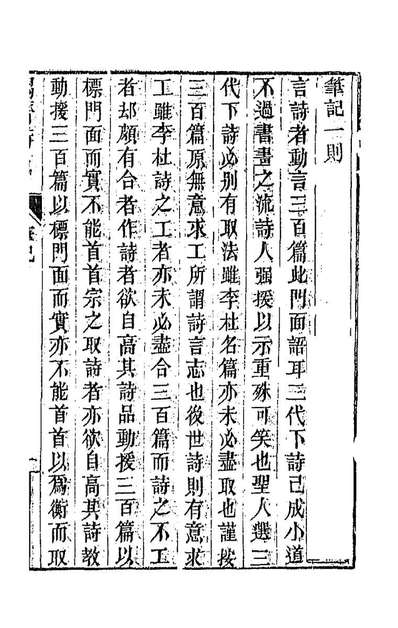 筆記一則
言詩者動言三百篇此門面語耳三代下詩已成小道
不過書畫之流詩人强援以示重殊可笑也聖人選三
代下詩必别有取法雖李杜名篇亦未必盡取也謹按
三百篇原無意求工所謂詩言志也後世詩則有意求
工雖李杜詩之工者亦未必盡合三百篇而詩之不工
者却頗有合者作詩者欲自高其詩品動援三百篇以
標門面而實不能首首宗之取詩者亦欲自高其詩教
動援三百篇以標門面而實亦不能首首以爲衡而取